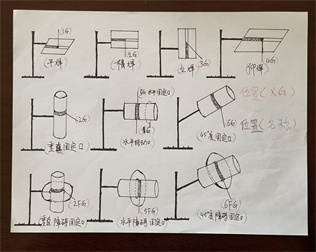 1G
(平焊)
2G
(横焊)
3G
(立焊)
4G
(仰焊)
位置(XG)
位置(名称)
2G
(垂直固定口)
5G 水平固定口
1G
(水平转动口)
6G
(45°固定口)
(2FG)
(垂直障碍固定口)
(5FG)
(水平障碍固定口)
(6FG)
(45°障碍固定口)